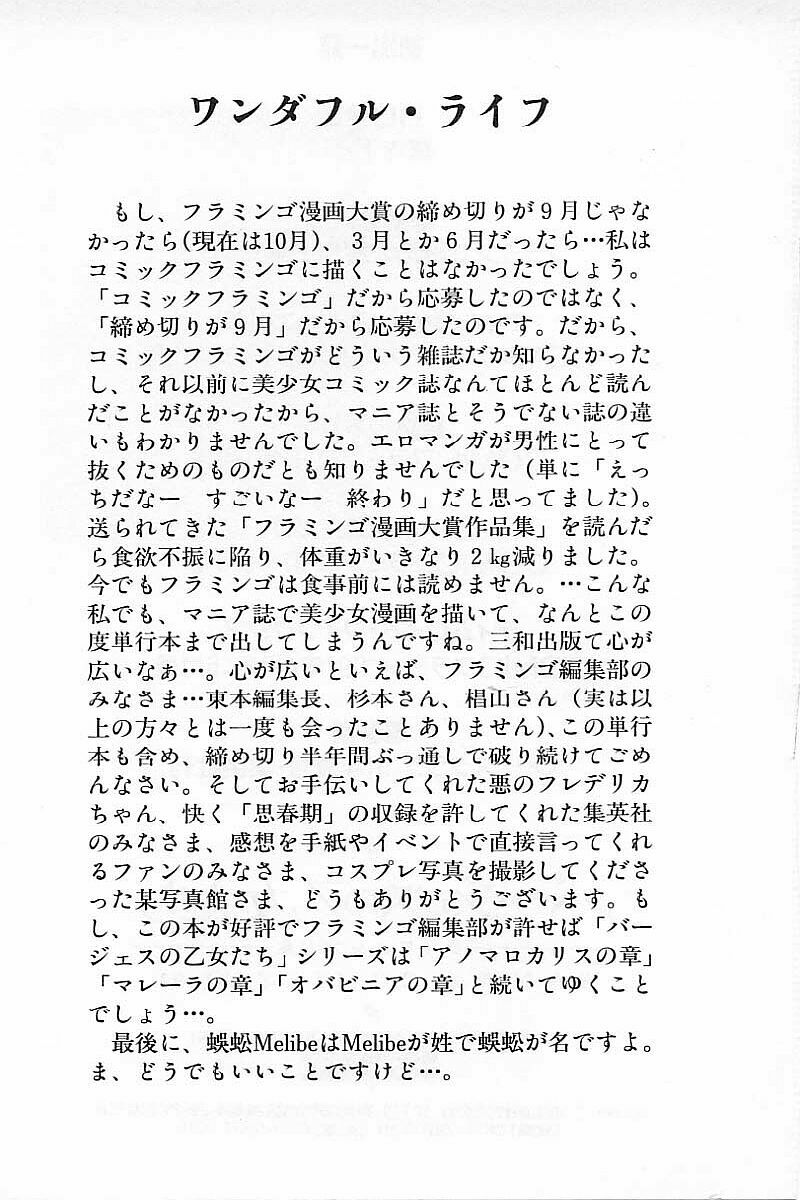 ワンダフル・ライフ
もし、フラミンゴ漫画大賞の締め切りが９月じゃな
かったら(現在は10月)、３月とか６月だったら…私は
コミックフラミンゴに描くことはなかったでしょう。
「コミックフラミンゴ」だから応募したのではなく、
「締め切りが９月」だから応募したのです。だから、
コミックフラミンゴがどういう雑誌だか知らなかった
し、それ以前に美少女コミック誌なんてほとんど読ん
だことがなかったから、マニア誌とそうでない誌の違
いもわかりませんでした。エロマンガが男性にとって
抜くためのものだとも知りませんでした（単に「えっ
ちだなー　すごいなー　終わり」だと思ってました）。
送られてきた「フラミンゴ漫画大賞作品集」を読んだ
ら食欲不振に陥り、体重がいきなり２㎏減りました。
今でもフラミンゴは食事前には読めません。…こんな
私でも、マニア誌で美少女漫画を描いて、なんとこの
度単行本まで出してしまうんですね。三和出版て心が
広いなぁ…。心が広いといえば、フラミンゴ編集部の
みなさま…東本編集長、杉本さん、椙山さん（実は以
上の方々とは一度も会ったことありません）、この単行
本も含め、締め切り半年間ぶっ通しで破り続けてごめ
んなさい。そしてお手伝いしてくれた悪のフレデリカ
ちゃん、快く「思春期」の収録を許してくれた集英社
のみなさま、感想を手紙やイベントで直接言ってくれ
るファンのみなさま、コスプレ写真を撮影してくださ
った某写真館さま、どうもありがとうございます。も
し、この本が好評でフラミンゴ編集部が許せば「バー
ジェスの乙女たち」シリーズは「アノマロカリスの章」
「マレーラの章」「オパビニアの章」と続いてゆくこと
でしょう…。
最後に、蜈蚣MelibeはMelibeが姓で蜈蚣が名ですよ。
ま、どうでもいいことですけど…。